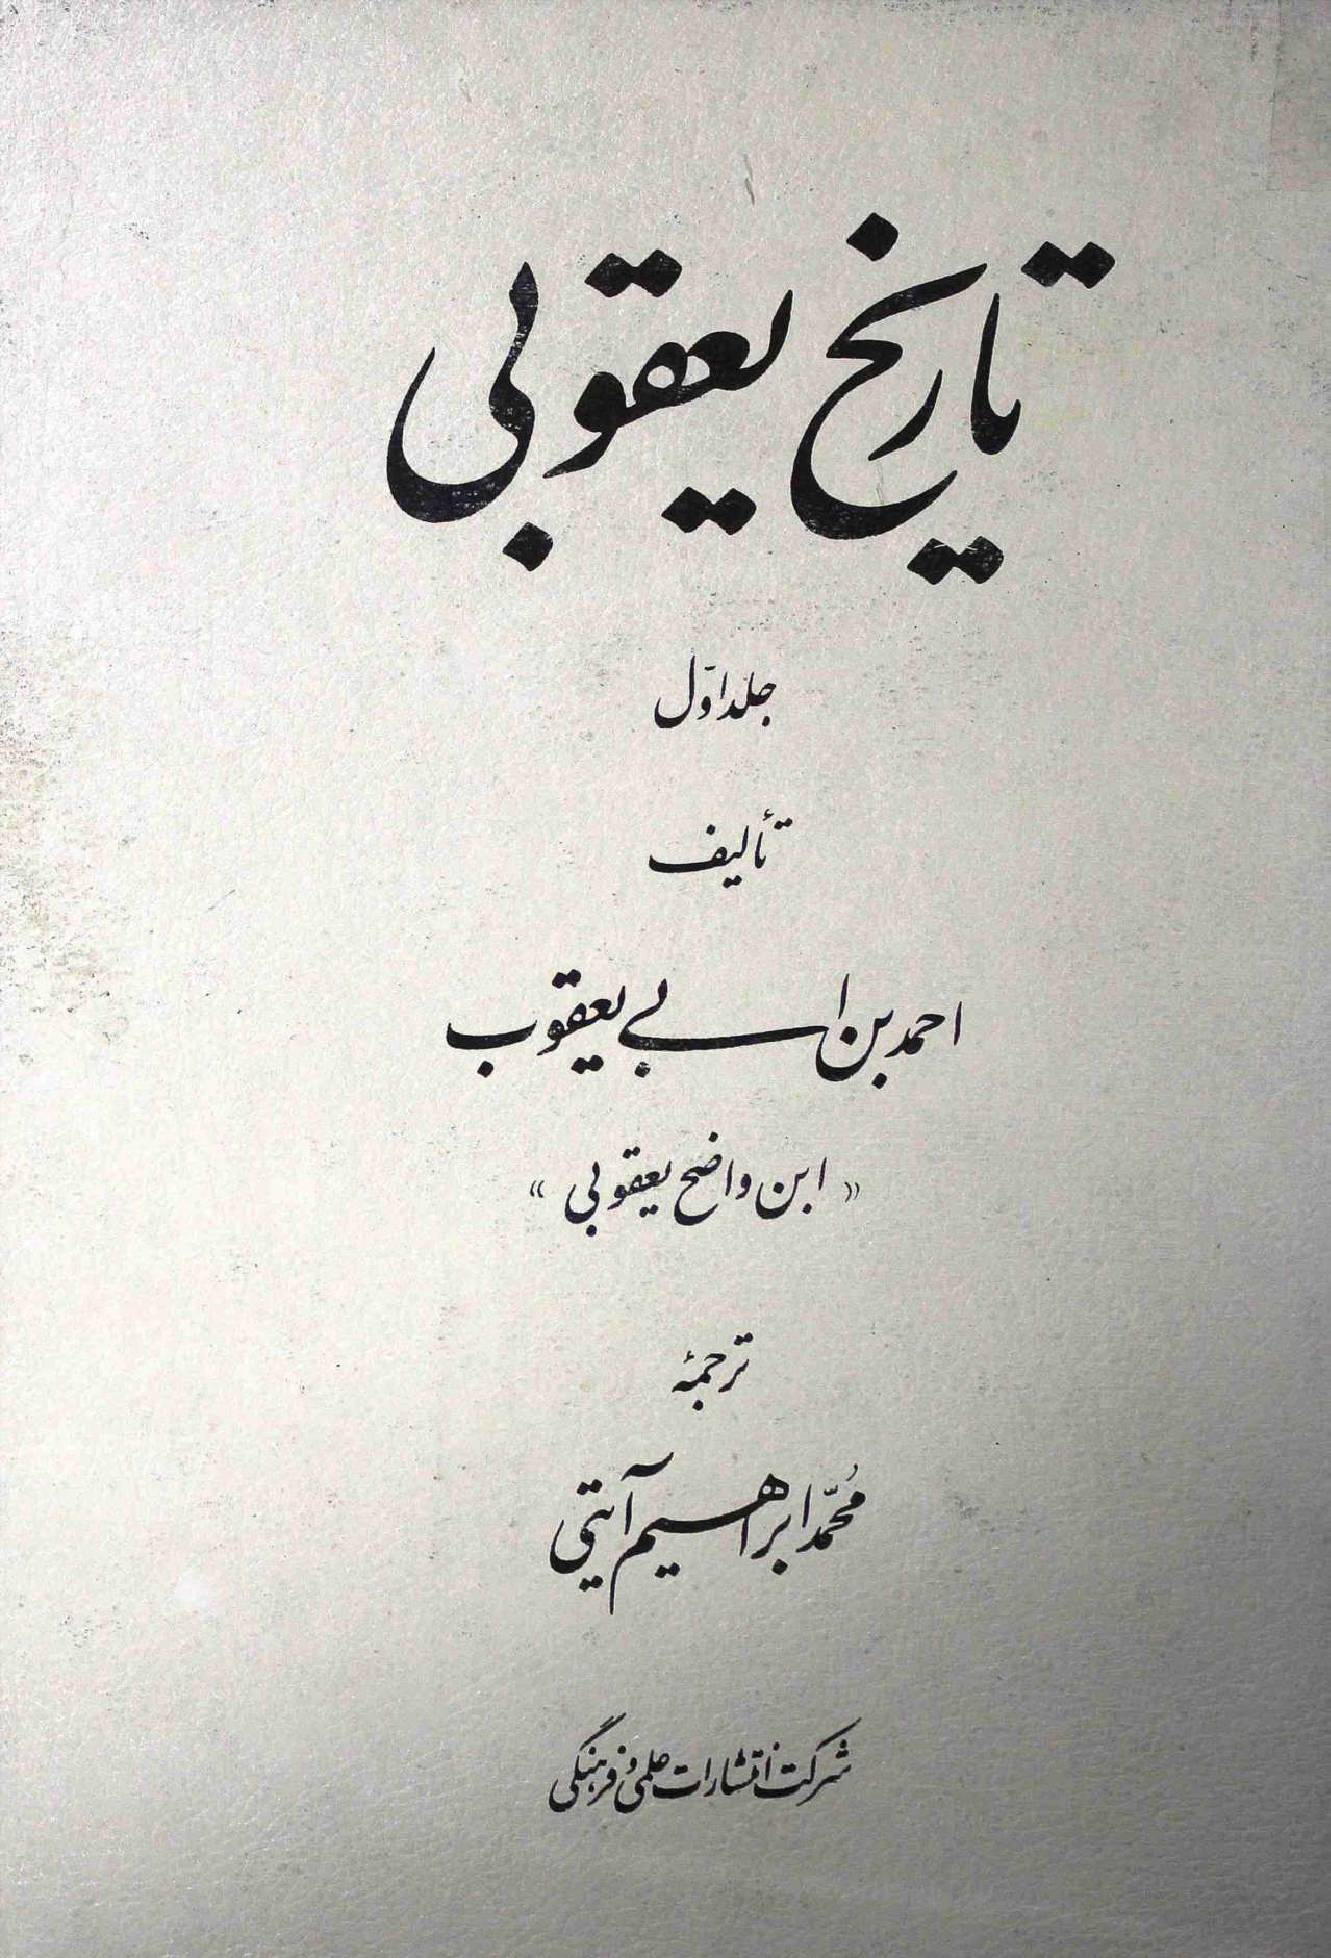 تاریخ یعقوبی
جلد اوّل
تألیف
احمد بن ابی یعقوب
« ابن واضح یعقوبی »
ترجمۀ
مُحمّد ابراهیم آیتی
شرکت انتشارات علمی و فرهنگی